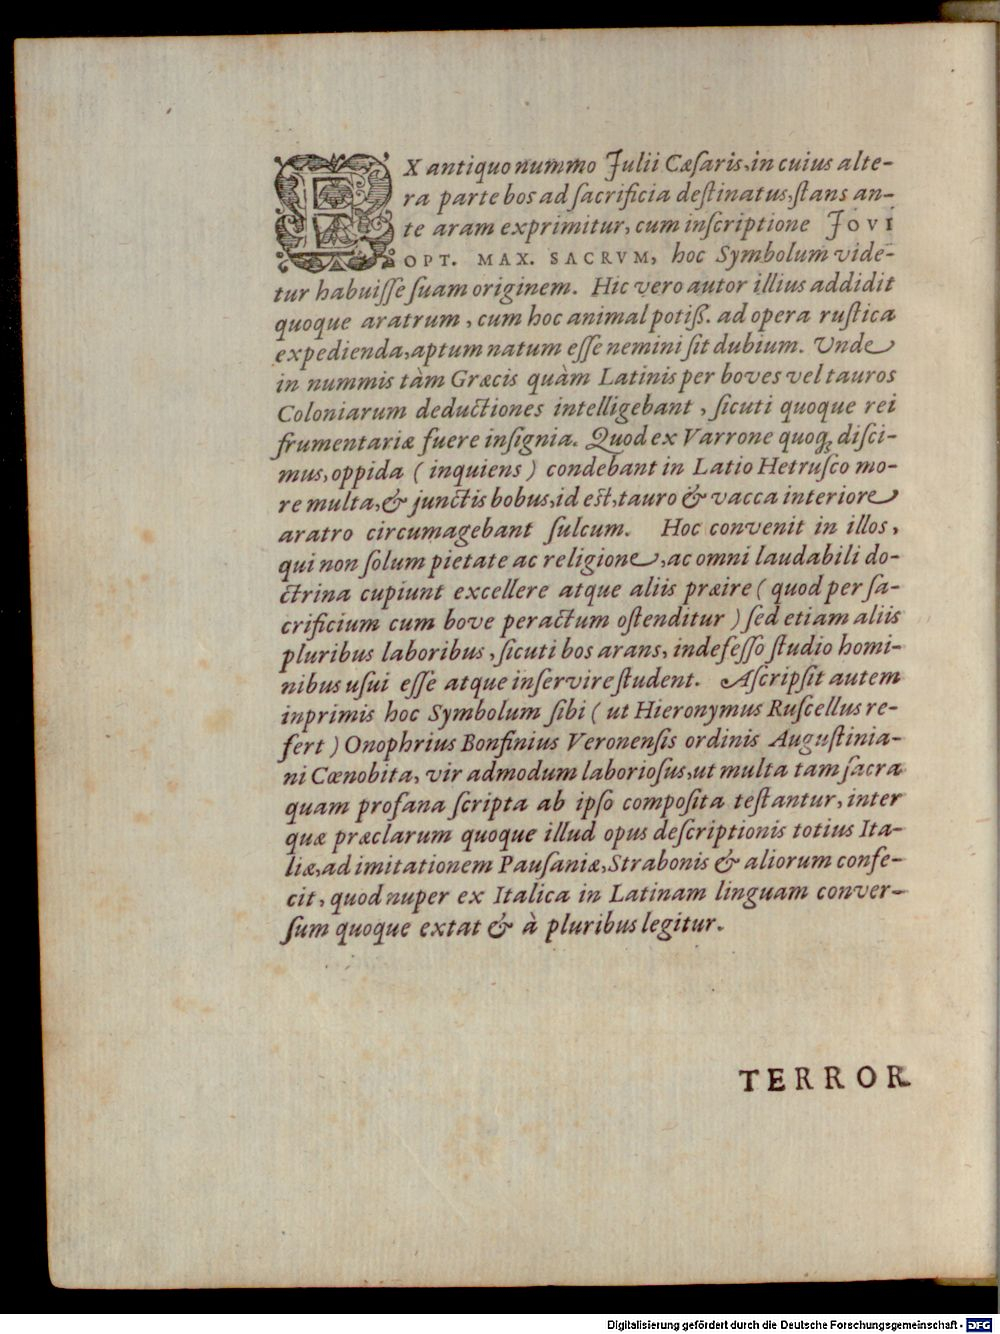 EX antiquo nummo Julii Cæſaris, in cuius alte-
ra parte bos ad ſacrificia deſtinatus, ſtans an-
te aram exprimitur, cum inſcriptione JOVI
OPT. MAX. SACRVM, hoc Symbolum vide-
tur habuiſſe ſuam originem. Hic vero autor illius addidit
quoque aratrum, cum hoc animal potiß. ad opera ruſtica
expedienda, aptum natum eſſe nemini ſit dubium. Unde
in nummis tàm Græcis quàm Latinis per boves vel tauros
Coloniarum deductiones intelligebant, ſicuti quoque rei
frumentariæ fuere inſignia. Quod ex Varrone quoq; diſci-
mus, oppida (inquiens) condebant in Latio Hetruſco mo-
re multa, & junctis bobus, id eſt, tauro & vacca interiore
aratro circumagebant ſulcum. Hoc convenit in illos,
qui non ſolum pietate ac religione, ac omni laudabili do-
ctrina cupiunt excellere atque aliis præire (quod per ſa-
crificium cum bove peractum oſtenditur) ſed etiam aliis
pluribus laboribus, ſicuti bos arans, indefeſſo ſtudio homi-
nibus uſui eſſe atque inſervire ſtudent. Aſcripſit autem
inprimis hoc Symbolum ſibi (ut Hieronymus Ruſcellus re-
fert) Onophrius Bonfinius Veronenſis ordinis Auguſtinia-
ni Cœnobita, vir admodum laborioſus, ut multa tam ſacra
quam profana ſcripta ab ipſo compoſita teſtantur, inter
quæ præclarum quoque illud opus deſcriptionis totius Ita-
liæ, ad imitationem Pauſaniæ, Strabonis & aliorum confe-
cit, quod nuper ex Italica in Latinam linguam conver-
ſum quoque extat & à pluribus legitur.
TERROR
Digitalisierung gefördert durch die Deutsche Forschungsgemeinschaft - DFG